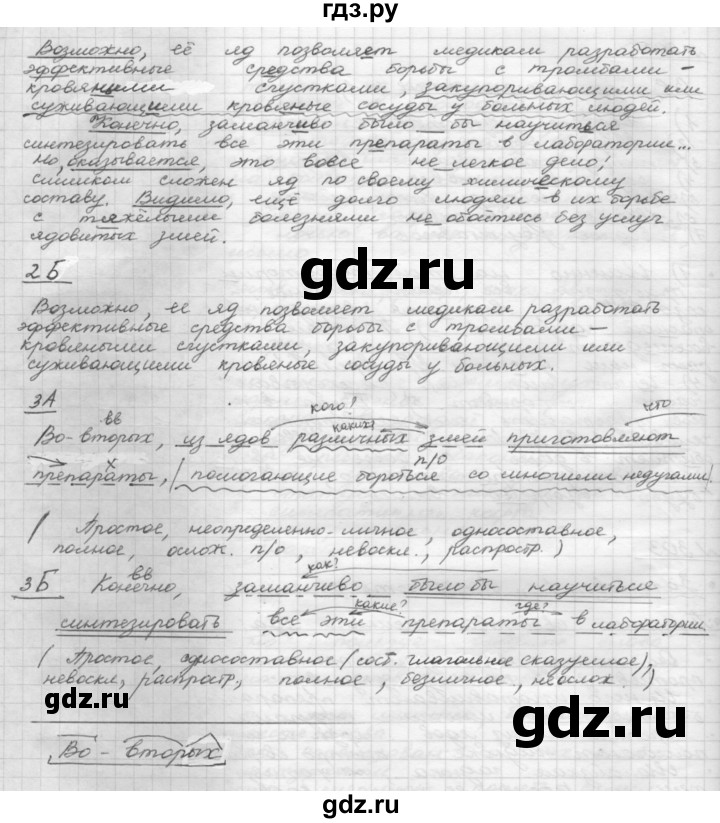 гдз.ру
Возможно, её яд позволяет медикам разработать
эффективные средства борьбы с тромбами –
кровяными сгустками, закупоривающими или
суживающими кровяные сосуды у больных людей.
Конечно, заманчиво было бы научиться
синтезировать все эти препараты в лаборатории...
Но, оказывается, это вовсе не легкое дело:
слишком сложен яд по своему химическому
составу. Видимо, ещё долго людям в их борьбе
с тяжёлыми болезнями не обойтись без услуг
ядовитых змей.
gdz.ru
2Б
Возможно, ее яд позволяет медикам разработать
эффективные средства борьбы с тромбами –
кровяными сгустками, закупоривающими или
суживающими кровяные сосуды у больных.
gdz.ru
3А
вв кого? каких? что
Во-вторых, из ядов различных змей приготовляют
х п/о
препараты, | помогающие бороться со многими недугами|.
(Простое, неопределенно-личное, односоставное,
полное, ослож. п/о, невоскл., распростр.)
вв как?
3Б Конечно, заманчиво было бы научиться
какие? где?
синтезировать все эти препараты в лаборатории.
(Простое, односоставное (сост. глагольное сказуемое),
невоскл, распростр, полное, безличное, неослож.)
gdz.ru
gdz.ru
Во-вторых
gdz.ru